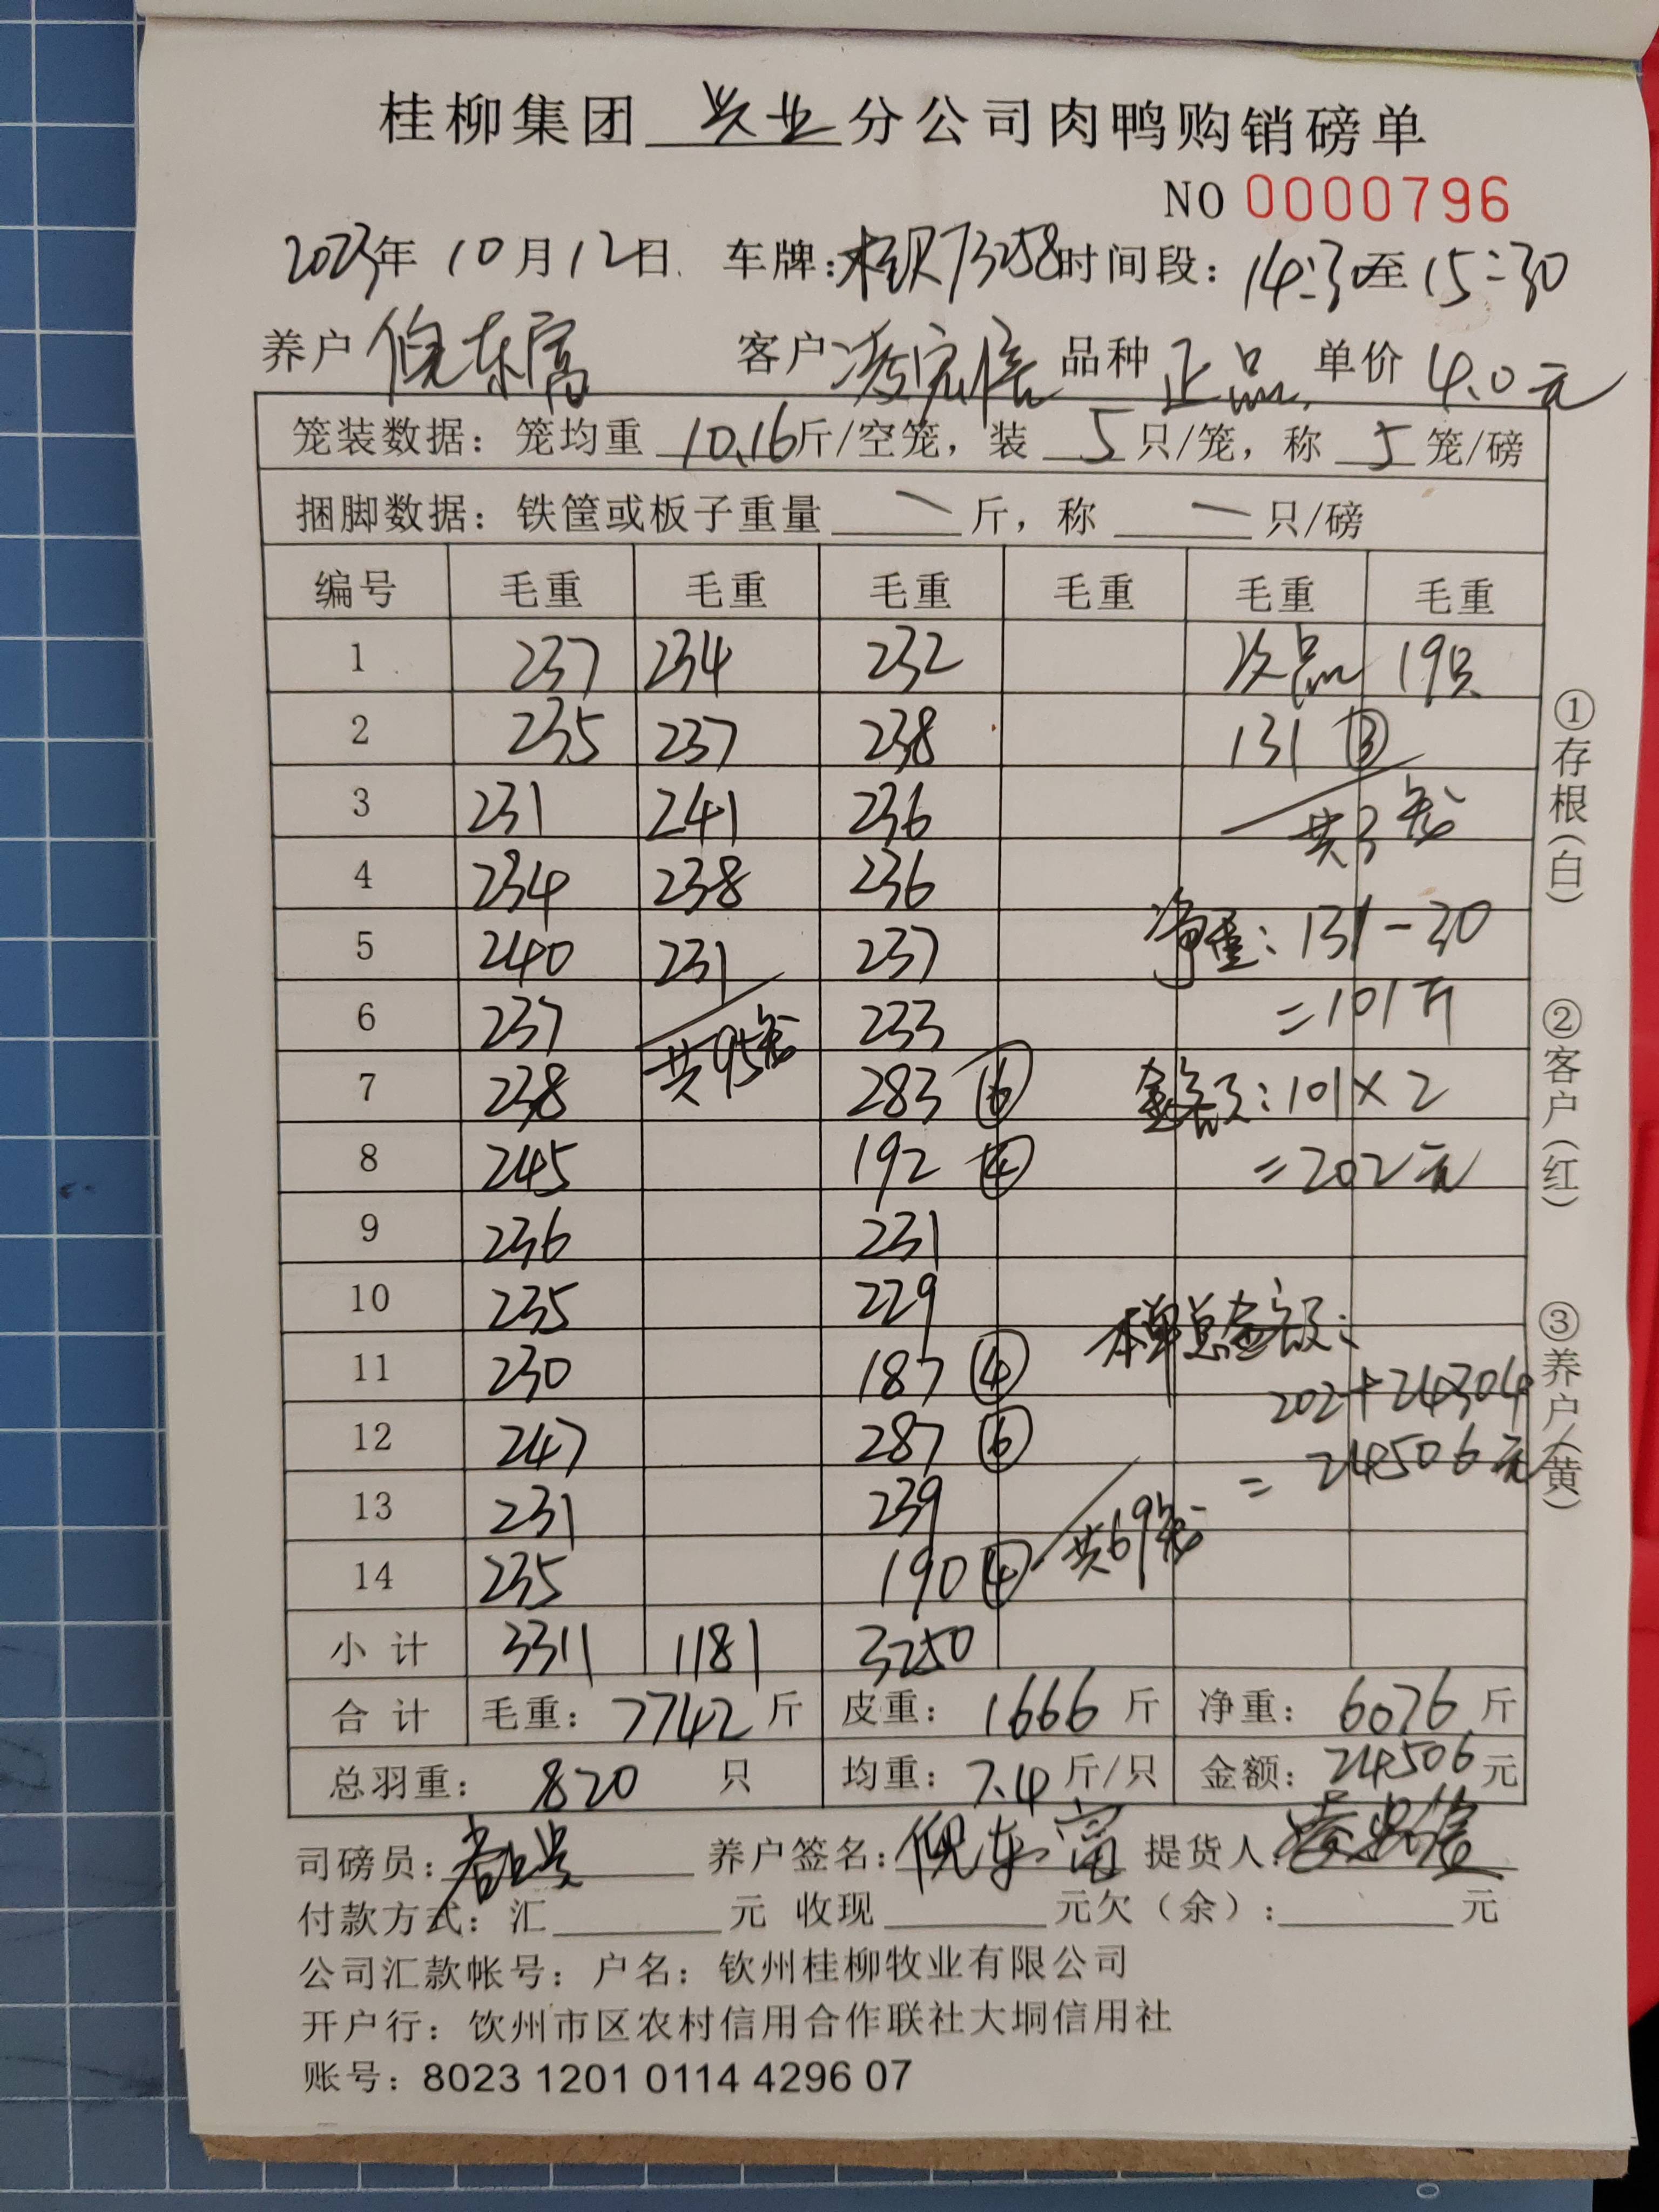 桂柳集团 兴业 分公司肉鸭购销磅单
NO 0000796
2023年 10月12日 车牌:桂R73258 时间段: 14:30至15:30
养户 倪东富 客户 品种 正品 单价 4.0元
笼装数据: 笼均重 10.16斤/空笼, 装 5 只/笼, 称 5 笼/磅
捆脚数据: 铁筐或板子重量 — 斤, 称 — 只/磅
编号 毛重 毛重 毛重 毛重 毛重 毛重
1 237 234 232 次品 19只
2 235 237 238 131 ③
3 231 241 236 共3笼
4 234 238 236
5 240 231 237 净重: 131-30
6 237 共95笼 233 =101斤
7 238 283 ⑥ 金额: 101×2
8 245 192 ④ =202元
9 236 231
10 235 229 本单总金额:
11 230 187 ④ 202+24304
12 247 287 ⑥ =24506元
13 231 239 共69笼
14 235 190 ④
小计 3311 1181 3250
合计 毛重: 7742 斤 皮重: 1666 斤 净重: 6076 斤
总羽重: 820 只 均重: 7.4 斤/只 金额: 24506 元
司磅员: 养户签名: 倪东富 提货人:
付款方式: 汇 元 收现 元欠(余): 元
公司汇款帐号: 户名: 钦州桂柳牧业有限公司
开户行: 饮州市区农村信用合作联社大垌信用社
账号: 8023 1201 0114 4296 07
①存根(白)
②客户(红)
③养户(黄)